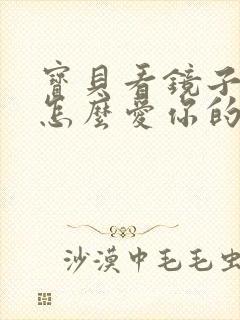 寶貝看鏡子
怎麼愛你的
沙漠中毛毛虫